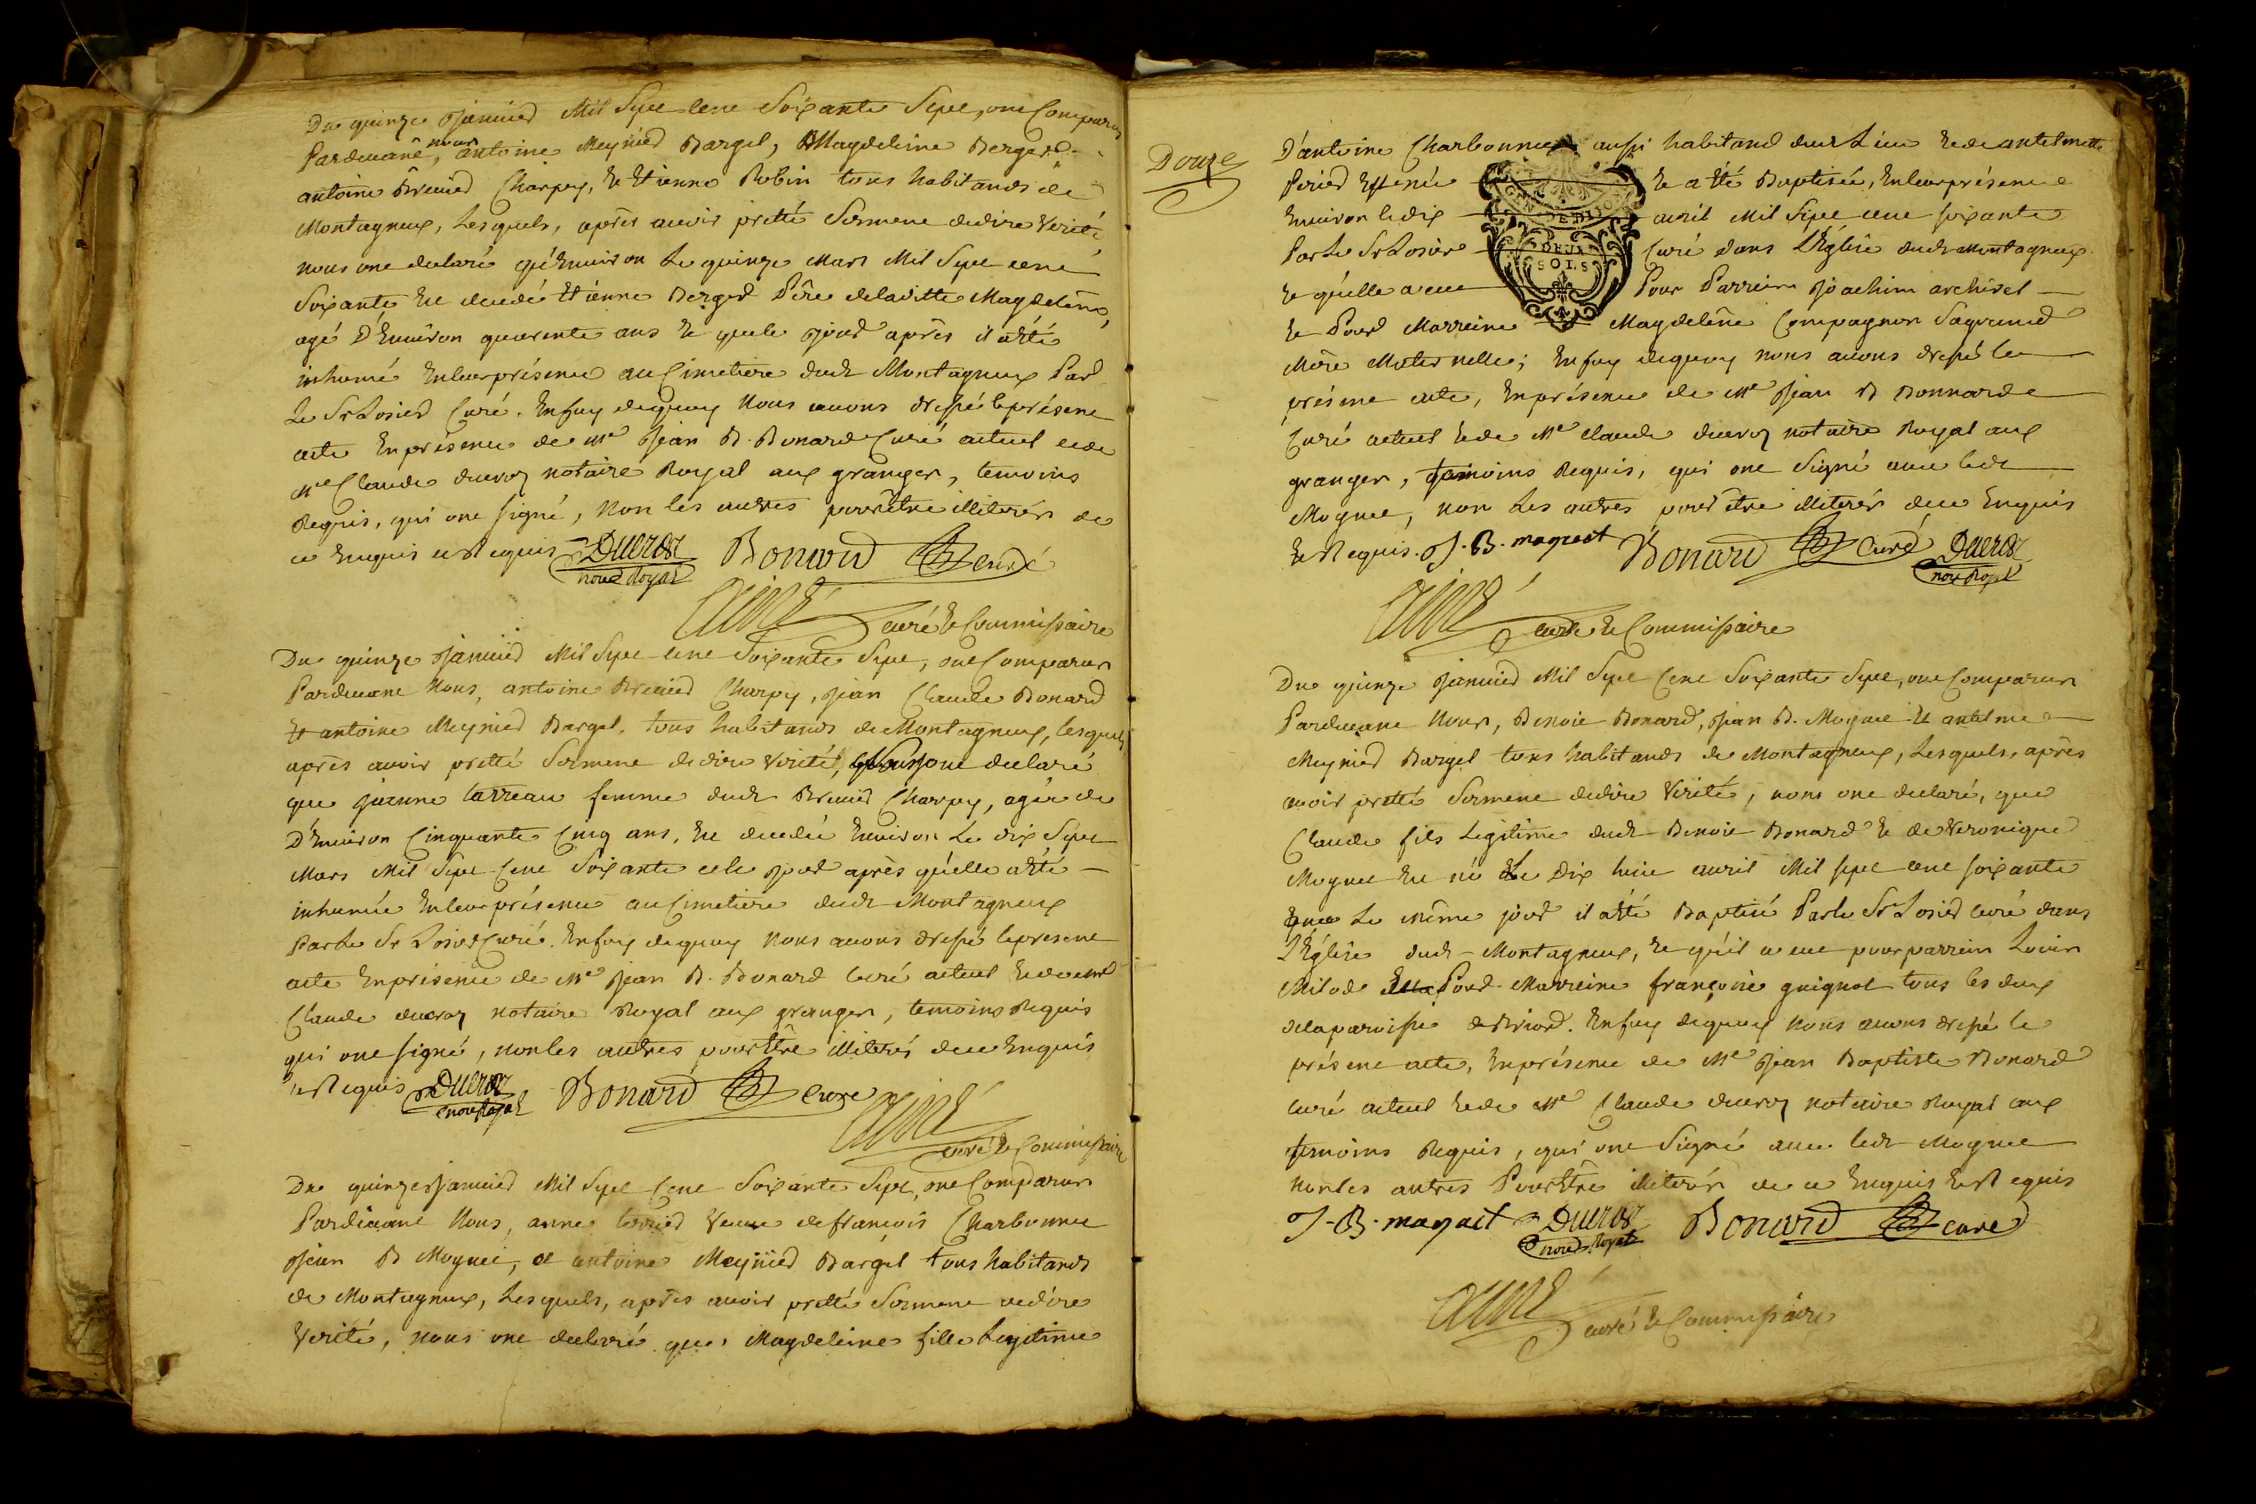 Du quinze Janvier Mil Sept Cent Soixante Sept, ont Comparus
Pardevant nous, antoine Meynier Bargel, Magdeleine Berger
antoine Brevier Charpy, Et Etienne Robin tous habitands de
Montagneux, Lesquels, après avoir pretté Serment dedire Verité
nous ont declaré qu'Environ Le quinze Mars Mil Sept cent
Soixante Est decedé Etienne Berger Père deladitte Magdeleine,
agé D'Environ quarente ans Et quele Jour après il a été
inhumé Enleur présence au Cimetiere dudt Montagneux Par
Le Sr Losier Curé. Enfoy dequoy Nous avons dressé leprésent
acte Enprésence de Me Jean B. Bonard Curé actuel et de
Me Claude ducroz notaire Royal aux granges, temoins
Requis, qui ont signé, Non les autres pour être illiterés de
ce Enquis et Requis Ducroz Bonard Curé
nore Royal
aimé curé & Commissaire
Du quinze Janvier Mil Sept Cent Soixante Sept, ont Comparus
Pardevant Nous, antoine Brevier Charpy, Jean Claude Bonard
Et antoine Meynier Bargel, tous habitands de Montagneux, lesquels
après avoir pretté Serment dedire Verité, Nous ont declaré
que Jeanne Carreau femme dudt Brevier Charpy, agée de
D'Environ Cinquante Cinq ans, Est decedée Environ Le dix Sept
Mars Mil Sept Cent Soixante et le Jour après qu'elle a été
inhumée Enleur présence au Cimetiere dudt Montagneux
Par Le Sr Losier Curé. Enfoy dequoy Nous avons dressé lepresent
acte Enprésence de Me Jean B. Bonard Curé actuel Et de Me
Claude ducroz notaire Royal aux granges, temoins Requis
qui ont signé, non les autres pour être illiterés de ce Enquis
et Requis Ducroz Bonard Curé
nore Royal
aimé curé & Commissaire
Du quinze Janvier Mil Sept Cent Soixante Sept, ont Comparus
Pardevant Nous, anne Veuve de francois Charbonnet
Jean B Moynet, et antoine Meynier Bargel tous habitands
de Montagneux, Lesquels, après avoir pretté Serment dedire
Verité, nous ont declaré que Magdeleine fille Legitime
Douze
D'antoine Charbonnet aussi habitand dudt Lieu Et de antelmette
Perier Est née Et a été Baptisée, Enleur présence
Environ le dix avril Mil Sept cent soixante
Par Le Sr Losier Curé dans L'Église dudt Montagneux
Et qu'elle a eue Pour Parrein Joachim archirel
Et Pour Marreine Magdeleine Compagnon Sagrand
Mère Maternelle; Enfoy dequoy nous avons dressé le
présent acte, Enprésence de Me Jean B Bonnard
Curé actuel Et de Me Claude ducroz notaire Royal aux
granges, temoins Requis, qui ont Signé avec ledt
Moynet, non Les autres pour être illiterés dece Enquis
Et Requis. J. B. mognait Bonard Curé Ducroz
nore Royal
GEN. DE DIJO
DEUX
SOLS
aimé curé & Commissaire
Du quinze Janvier Mil Sept Cent Soixante Sept, ont Comparus
Pardevant Nous, Benoit Bonard, Jean B. Moynet Et antelme
Meynier Bargel tous habitands de Montagneux, Lesquels, après
avoir pretté Serment dedire Verité, nous ont declaré, que
Claude fils Legitime dudt Benoit Bonard Et de Veronique
Moynet Est né Le Dix huit avril Mil sept cent soixante
que Le même jour il a été Baptisé Par Le Sr Losier Curé dans
L'Église dudt Montagneux, Et qu'il a eut pour parrein Louis
Milod Et Pour Marreine françoise guignot tous les deux
delaparoisse de Briord. Enfoy dequoy Nous avons dressé le
présent acte, Enprésence de Me Jean Baptiste Bonard
Curé actuel Et de Me Claude ducroz notaire Royal aux
temoins Requis, qui ont Signé avec ledt Moynet
Non les autres Pour être illiterés de ce Enquis Et Requis
J. B. mognait Ducroz Bonard curé
nore Royal
aimé curé & Commissaire